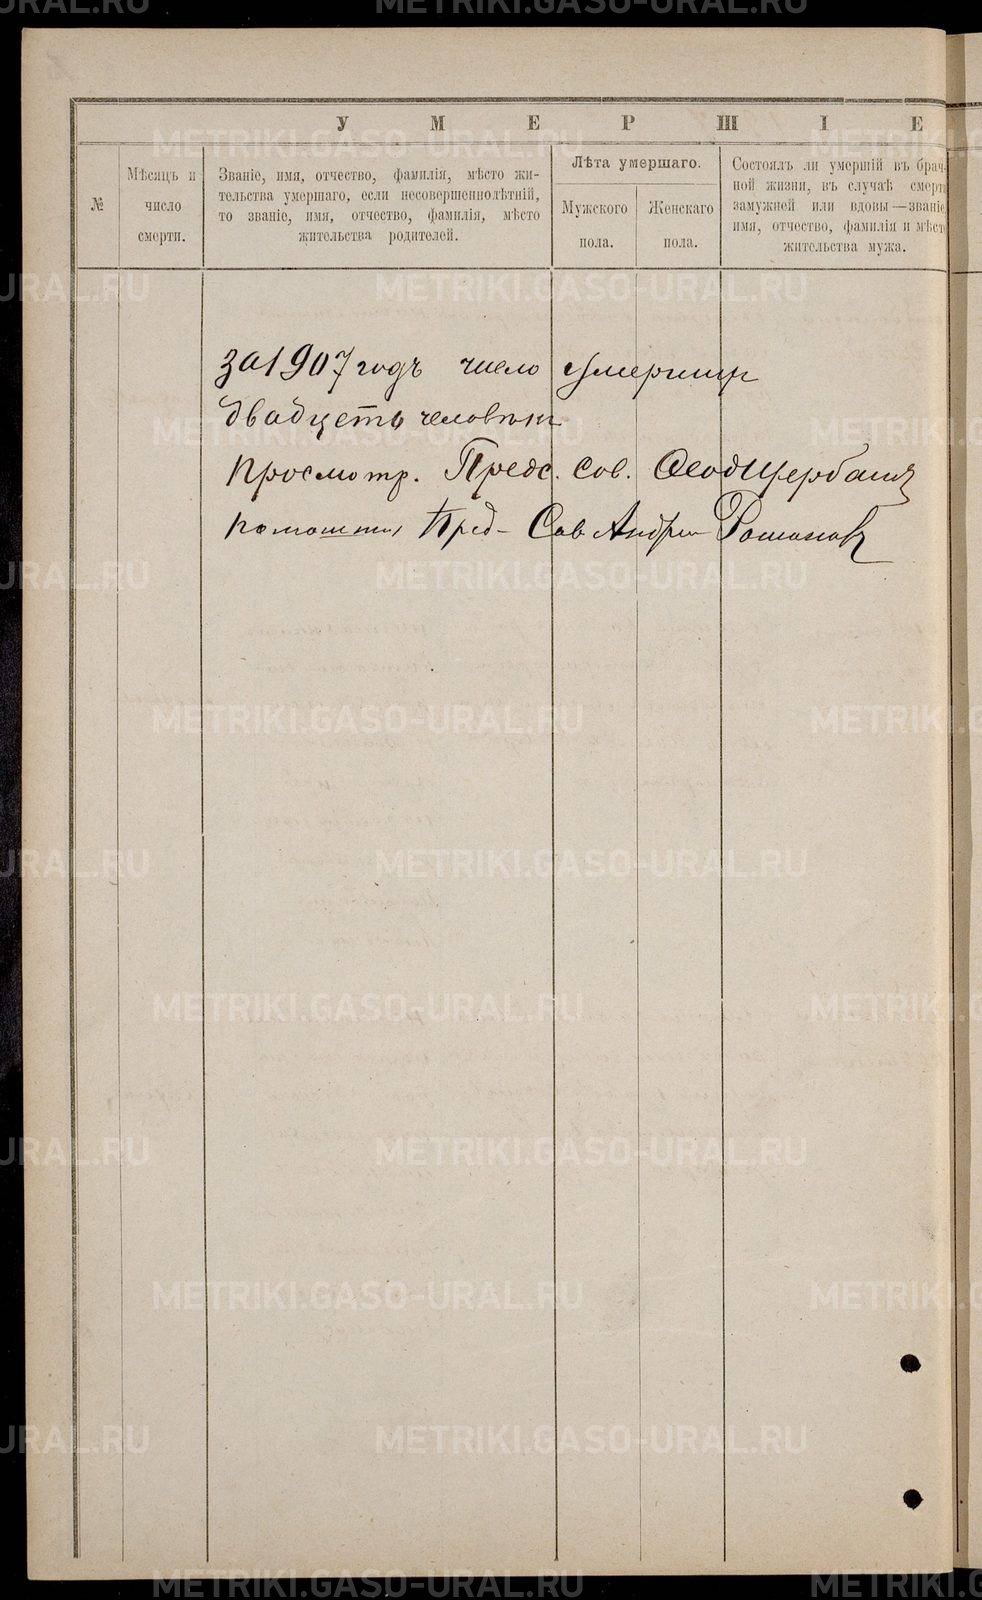 У М Е Р Ш І Е
№
Мѣсяцъ и
число
смерти.
Званіе, имя, отчество, фамилія, мѣсто жи-
тельства умершаго, если несовершеннолѣтній,
то званіе, имя, отчество, фамилія, мѣсто
жительства родителей.
Лѣта умершаго.
Мужского
пола.
Женскаго
пола.
Состоялъ ли умершій въ брач-
ной жизни, въ случаѣ смерти
замужней или вдовы—званіе,
имя, отчество, фамилія и мѣсто
жительства мужа.
за 1907 годъ число
двадцеть
просмотр. Предс. Сов.
Пред- Сов Андрей Романов
METRIKI.GASO-URAL.RU